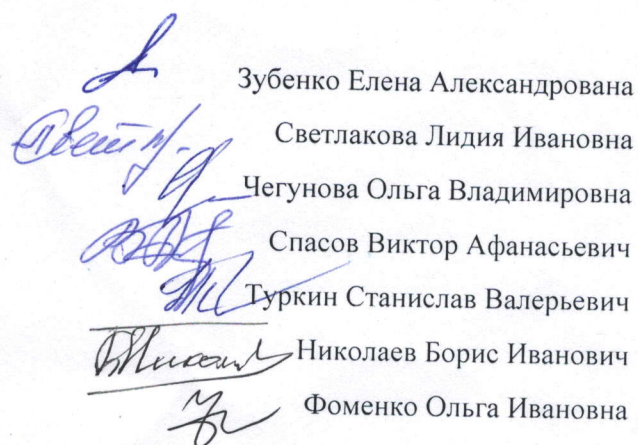 Зубенко Елена Александрована
Светлакова Лидия Ивановна
Чегунова Ольга Владимировна
Спасов Виктор Афанасьевич
Туркин Станислав Валерьевич
Николаев Борис Иванович
Фоменко Ольга Ивановна